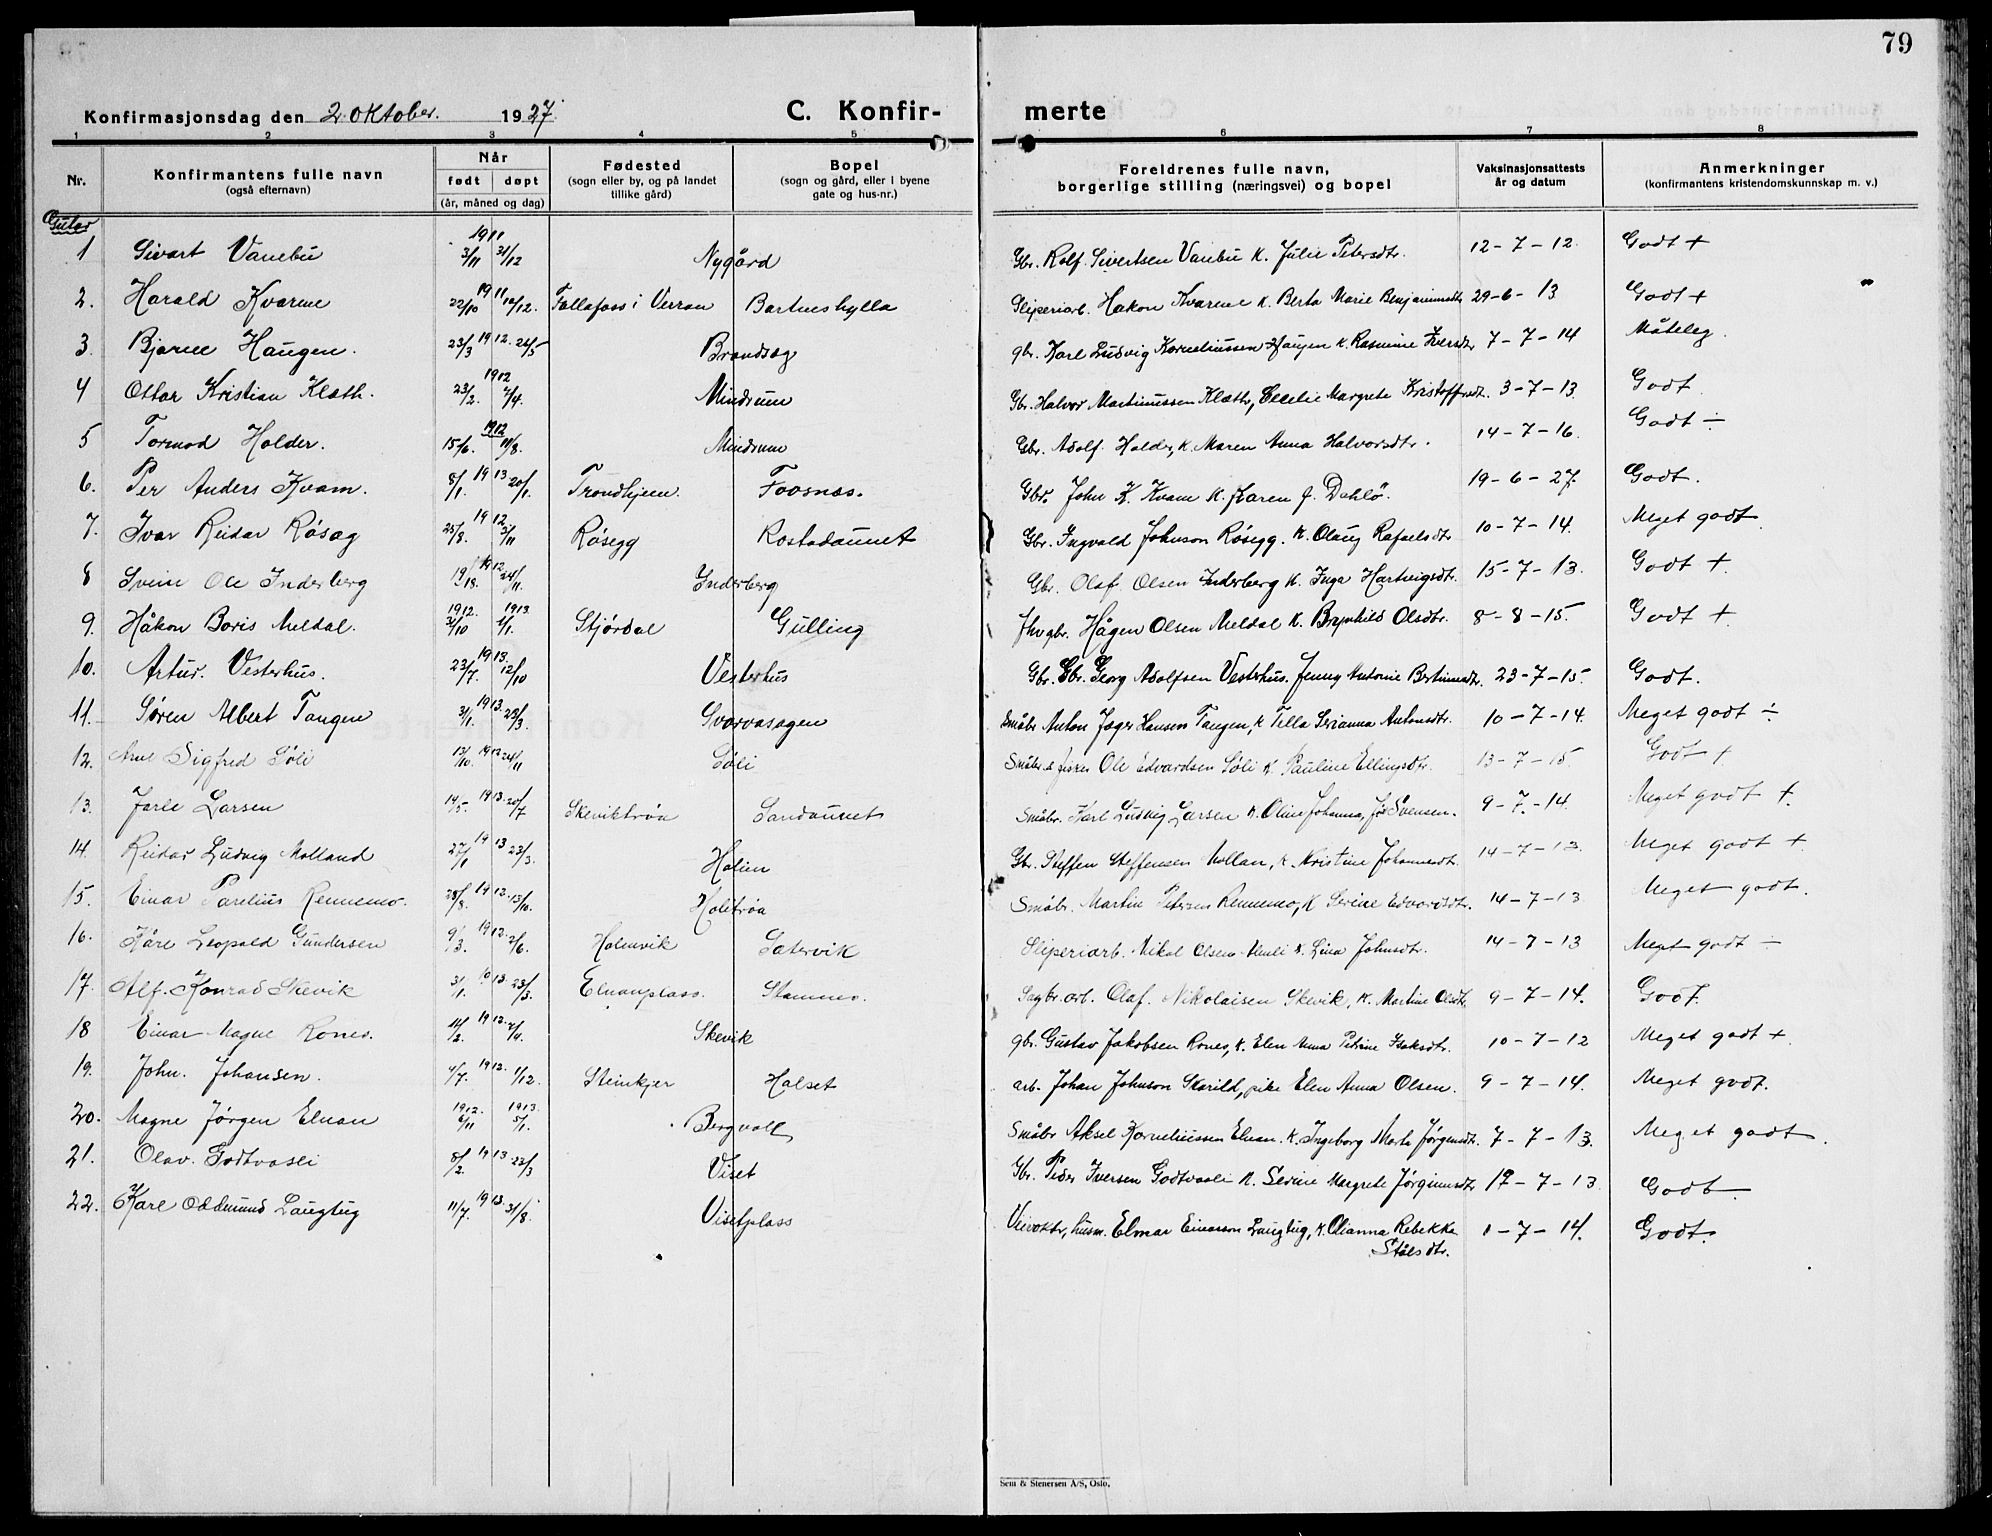 79
Konfirmasjonsdag den 2. oktober. 1927. C. Konfir- merte
1 2 3 4 5 6 7 8
Nr. Konfirmantens fulle navn (også efternavn) Når født døpt (år, måned og dag) Fødested (sogn eller by, og på landet tillike gård) Bopel (sogn og gård, eller i byene gate og hus-nr.) Foreldrenes fulle navn, borgerlige stilling (næringsvei) og bopel Vaksinasjonsattests år og datum Anmerkninger (konfirmantens kristendomskunnskap m. v.)
Gutar
1 Sivart Vanebu 1911 3/11 31/12 Nygård Gbr. Rolf Sivertsen Vanebu k. Julie Petersdtr. 12-7-12. Godt +
2. Harald Kvarme 22/10 1911 10/12. Follafoss i Verran Bartneshylla Sliperiarb. Hakon Kvarme k. Berta Marie Benjaminsdtr 29-6-13 Godt +
3. Bjarne Haugen. 23/3 1912. 26/5 Brandsåg gbr. Karl Ludvig Korneliussen Haugen k. Rasmine Iversdtr 7-7-14 Måteleg.
4 Ottar Kristian Kleth. 1912 23/2. 7/4. Mindrum Gbr. Halvor Martinussen Kleth, Cecelie Margrete Kristoffersdtr. 3-7-13 Godt
5 Tormod Holder. 1912 15/6. 11/8. Mindrum Gbr. Adolf Holder, k. Maren Anna Halvorsdtr. 14-7-16. Godt ÷
6. Per Anders Kvam. 8/1. 1913 20/1. Trondhjem. Foosnes. Gbr. John K. Kvam k. Karen J. Dahlö. 19-6-27. Godt.
7. Ivar Reidar Røsåg 25/8. 1912. 3/11 Røsegg Rostadaunet Gbr. Ingvald Johnson Røsegg. k. Olaug Rafaelsdtr 10-7-14. Meget godt.
8 Svein Ole Inderberg 19/8. 1912 24/11. Inderberg Gbr. Olaf Olsen Inderberg k. Inga Hartvigsdtr. 15-7-13. Godt +.
9. Håkon Boris Meldal. 1912. 31/10 1913. 1/1. Stjørdal Gulling fhv gbr. Hågen Olsen Meldal k. Brynhild Olsdtr. 8-8-15. Godt +
10. Artur. Vesterhus. 23/7. 1913. 12/10 Vesterhus Gbr. Gbr. Georg Adolfsen Vesterhus. Jenny Antonie Bertinusdtr. 23-7-15. Godt.
11. Søren Albert Tangen 3/1. 1913. 23/3. Svarvasagen Småbr Anton Jæger Hansen Tangen, k Tella Serianna Antonsdtr. 10-7-14. Meget godt ÷
12. Arne Sigfred Søli 13/10. 1912 24/11 Søli Småbr. & fisker Ole Edvardsen Søli k. Pauline Ellingsdtr. 13-7-15. Godt +
13. Jarle Larsen 14/5. 1913. 20/7 Skeviktrøa Sandaunet Småbr. Karl Ludvig Larsen k. Oline Johanna, Svensen. 9-7-14. Meget godt +.
14. Reidar Ludvig Molland 27/1 1913 23/3. Holien Gbr. Steffen Steffensen Mollan, k. Kristine Johannesdtr. 14-7-13. Meget godt +
15. Einar Parelius Rennemo. 28/8. 1912. 13/10. Holetrøa Småbr. Martin Petersen Rennemo, k Serine Edvardsdtr. 14-7-13 Meget godt.
16. Kåre Leopold Gundersen 9/3. 1912. 2/6. Holmvik Sætervik Sliperiarb. Nikol Olsen k. Lina Johnsdtr. 14-7-13 Meget godt ÷
17. Alf. Konrad Skevik 3/1. 1913. 23/3. Elnanplass. Stamnes. Sagbr. arb. Olaf. Nikolaisen Skevik, k. Martine Olsdtr. 9-7-14. Godt.
18 Einar Magne Rones. 14/2. 1912. Skevik gbr. Gustav Jakobsen Rones, k. Elen Anna Petrine Isaksdtr. 10-7-12 Meget godt +
19. John. Johansen. 4/7. 1912. 1/12. Steinkjer Halset arb. Johan Johnson Skarild, pike Elen Anna Olsen. 9-7-14. Meget godt.
20. Magne Jørgen Elnan 1912. 6/11 1913. 5/1. Bergvoll Småbr Aksel Korneliussen Elnan. k. Ingeborg Marta Jørgensdtr. 7-7-13. Meget godt.
21. Olav. Godtvasli 8/2. 1913 23/3 Viset Gbr. Peder Iversen Godtvasli k. Serine Margrete Jørginusdtr 12-7-13 Godt
22. Karl Oddmund Laugtug 11/7. 1913. 31/8. Visetplass Veivoktr, husm. Elmar Einarson Laugtug, k. Olianna Rebekka 1-7-14. Godt.
Ståls dtr.
Sem & Stenersen A/S, Oslo.